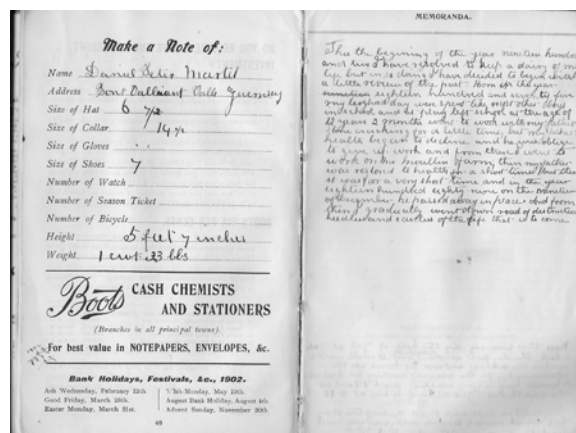 Make a Note of:
Name Daniel
Address Guernsey
Size of Hat 6 7/8
Size of Collar 14 1/2
Size of Gloves . .
Size of Shoes 7
Number of Watch
Number of Season Ticket
Number of Bicycle
Height 5 feet 7 inches
Weight 1 cwt. 33 lbs
Boots CASH CHEMISTS
AND STATIONERS
(Branches in all principal towns).
For best value in NOTEPAPERS, ENVELOPES, &c.
Bank Holidays, Festivals, &c., 1902.
Ash Wednesday, February 12th.
Good Friday, March 28th.
Easter Monday, March 31st.
Whit-Monday, May 19th.
August Bank Holiday, August 4th.
Advent Sunday, November 30th.
MEMORANDA.
This the beginning of the year nineteen hundred
and two I have resolved to keep a diary of my
life but in so doing I have decided to begin with
a little review of the past. Born in the year
eighteen hundred and seventy five
my boyhood day were spent like most other boys
in school and at play left school at the age of
12 years 2 months went to work with my father
for a little time, but my father
health began to decline and he was oblige
to give up work and from there went to
work on the farm, then my father
was restored to health for a short time
it was for a very short time and in the year
eighteen hundred eighty nine on the
of December he passed away in peace. And from
gradually went down road of destruction
heedless and careless of the life that is to come